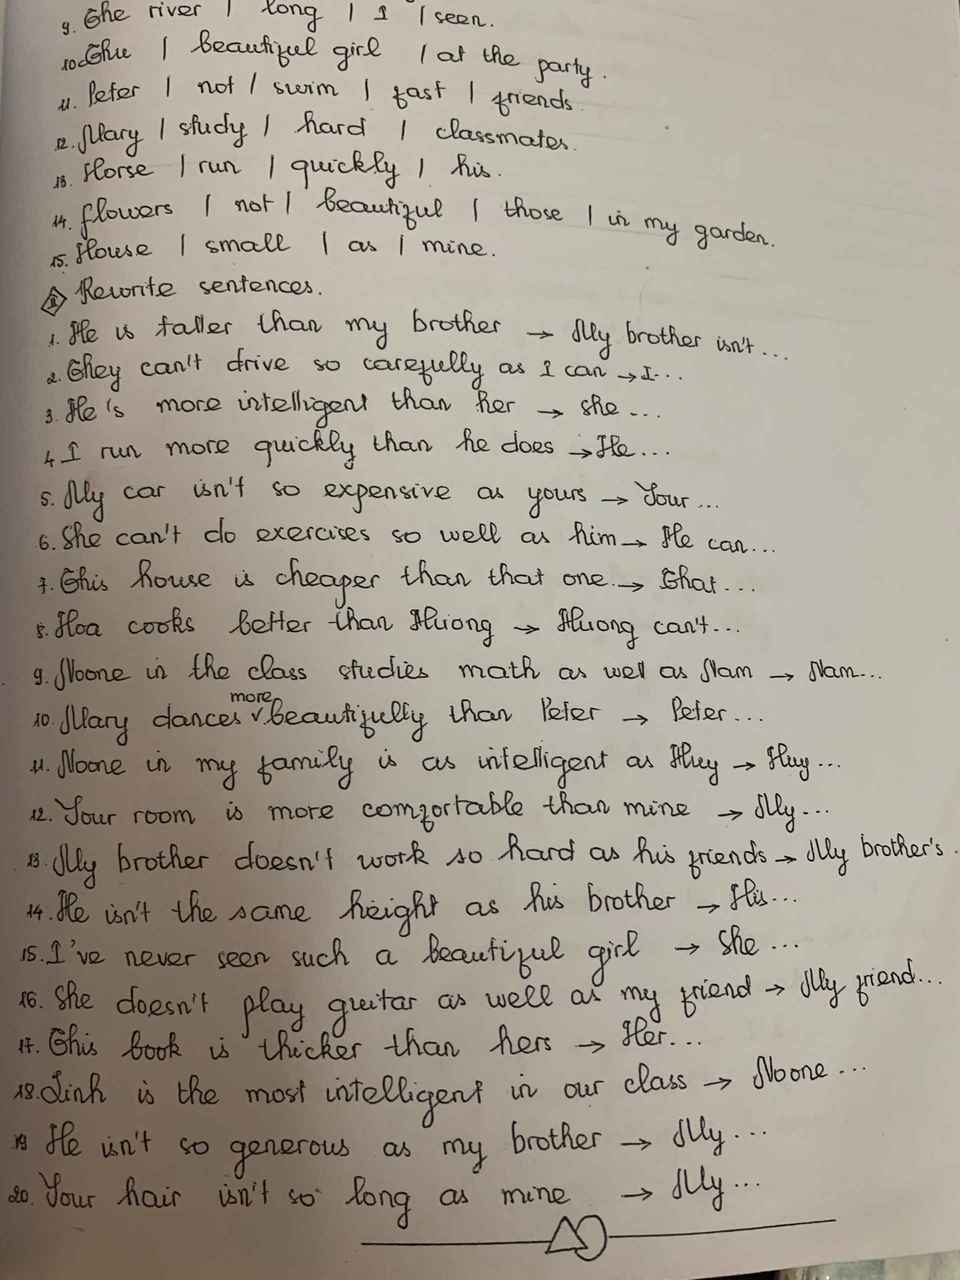 9. The river / long / I / seen.
10. Thu / beautiful girl / at the party.
11. Peter / not / swim / fast / friends
12. Mary / study / hard / classmates.
13. Horse / run / quickly / his.
14. flowers / not / beautiful / those / in my garden.
15. House / small / as / mine.
II Rewrite sentences.
1. He is taller than my brother → My brother isn't...
2. They can't drive so carefully as I can → I...
3. He's more intelligent than her → she...
4. I run more quickly than he does → He...
5. My car isn't so expensive as yours → Your...
6. She can't do exercises so well as him → He can...
7. This house is cheaper than that one. → That...
8. Hoa cooks better than Huong → Huong can't...
9. Noone in the class studies math as well as Nam → Nam...
10. Mary dances more beautifully than Peter → Peter...
11. Noone in my family is as intelligent as Huy → Huy...
12. Your room is more comfortable than mine → My...
13. My brother doesn't work so hard as his friends → My brother's.
14. He isn't the same height as his brother → His...
15. I've never seen such a beautiful girl → She...
16. She doesn't play guitar as well as my friend → My friend...
17. This book is thicker than hers → Her...
18. Linh is the most intelligent in our class → Noone...
19 He isn't so generous as my brother → My...
20. Your hair isn't so long as mine → My...